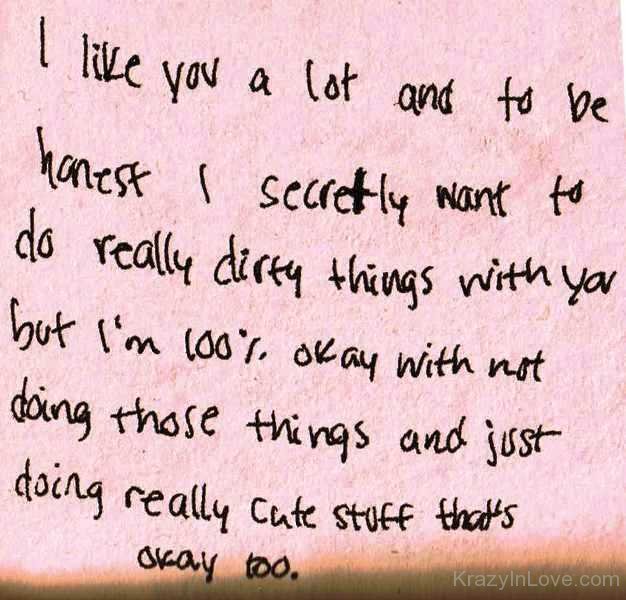 I like you a lot and to be
honest I secretly want to
do really dirty things with you
but I'm 100% okay with not
doing those things and just
doing really cute stuff that's
okay too.
KrazyInLove.com